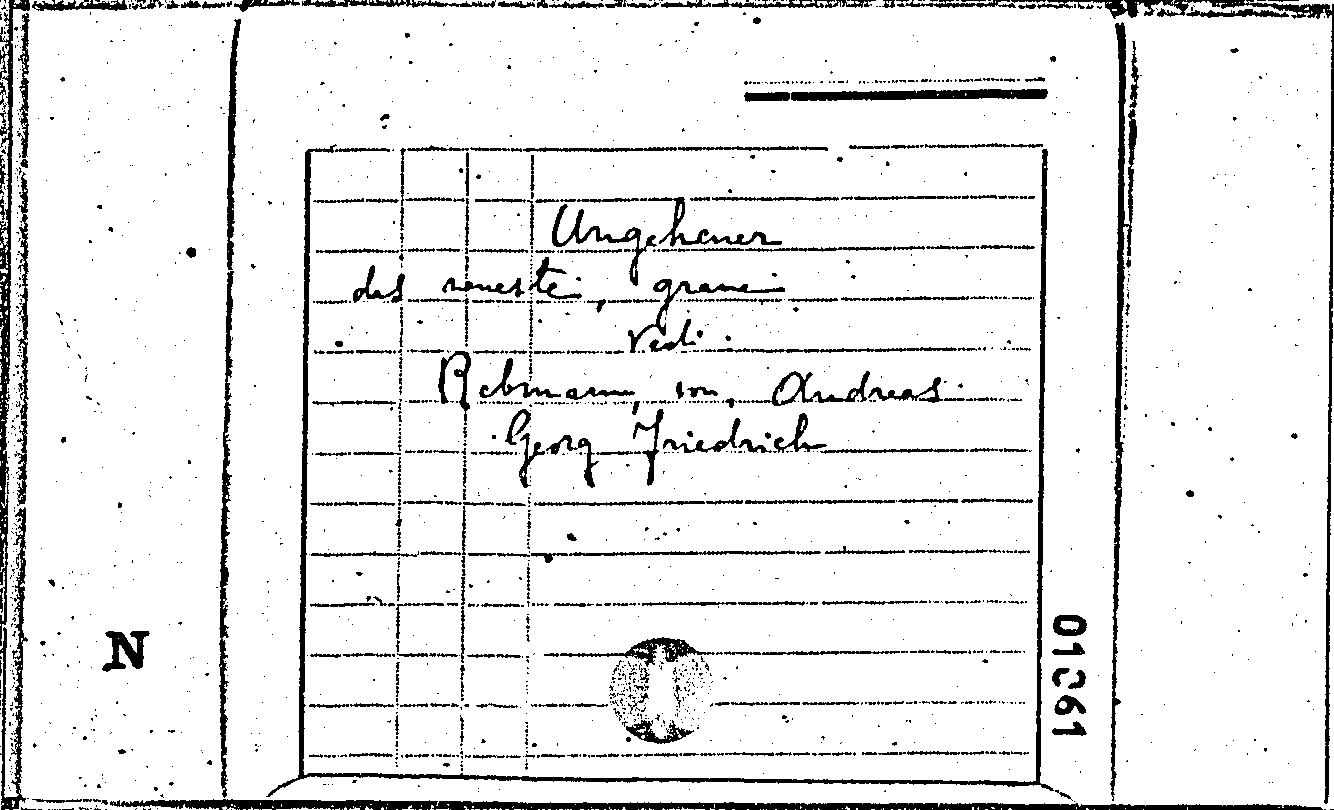 Ungeheuer
das neueste, graue
Vedi.
Rebmann, von, Andreas
Georg Friedrich
N